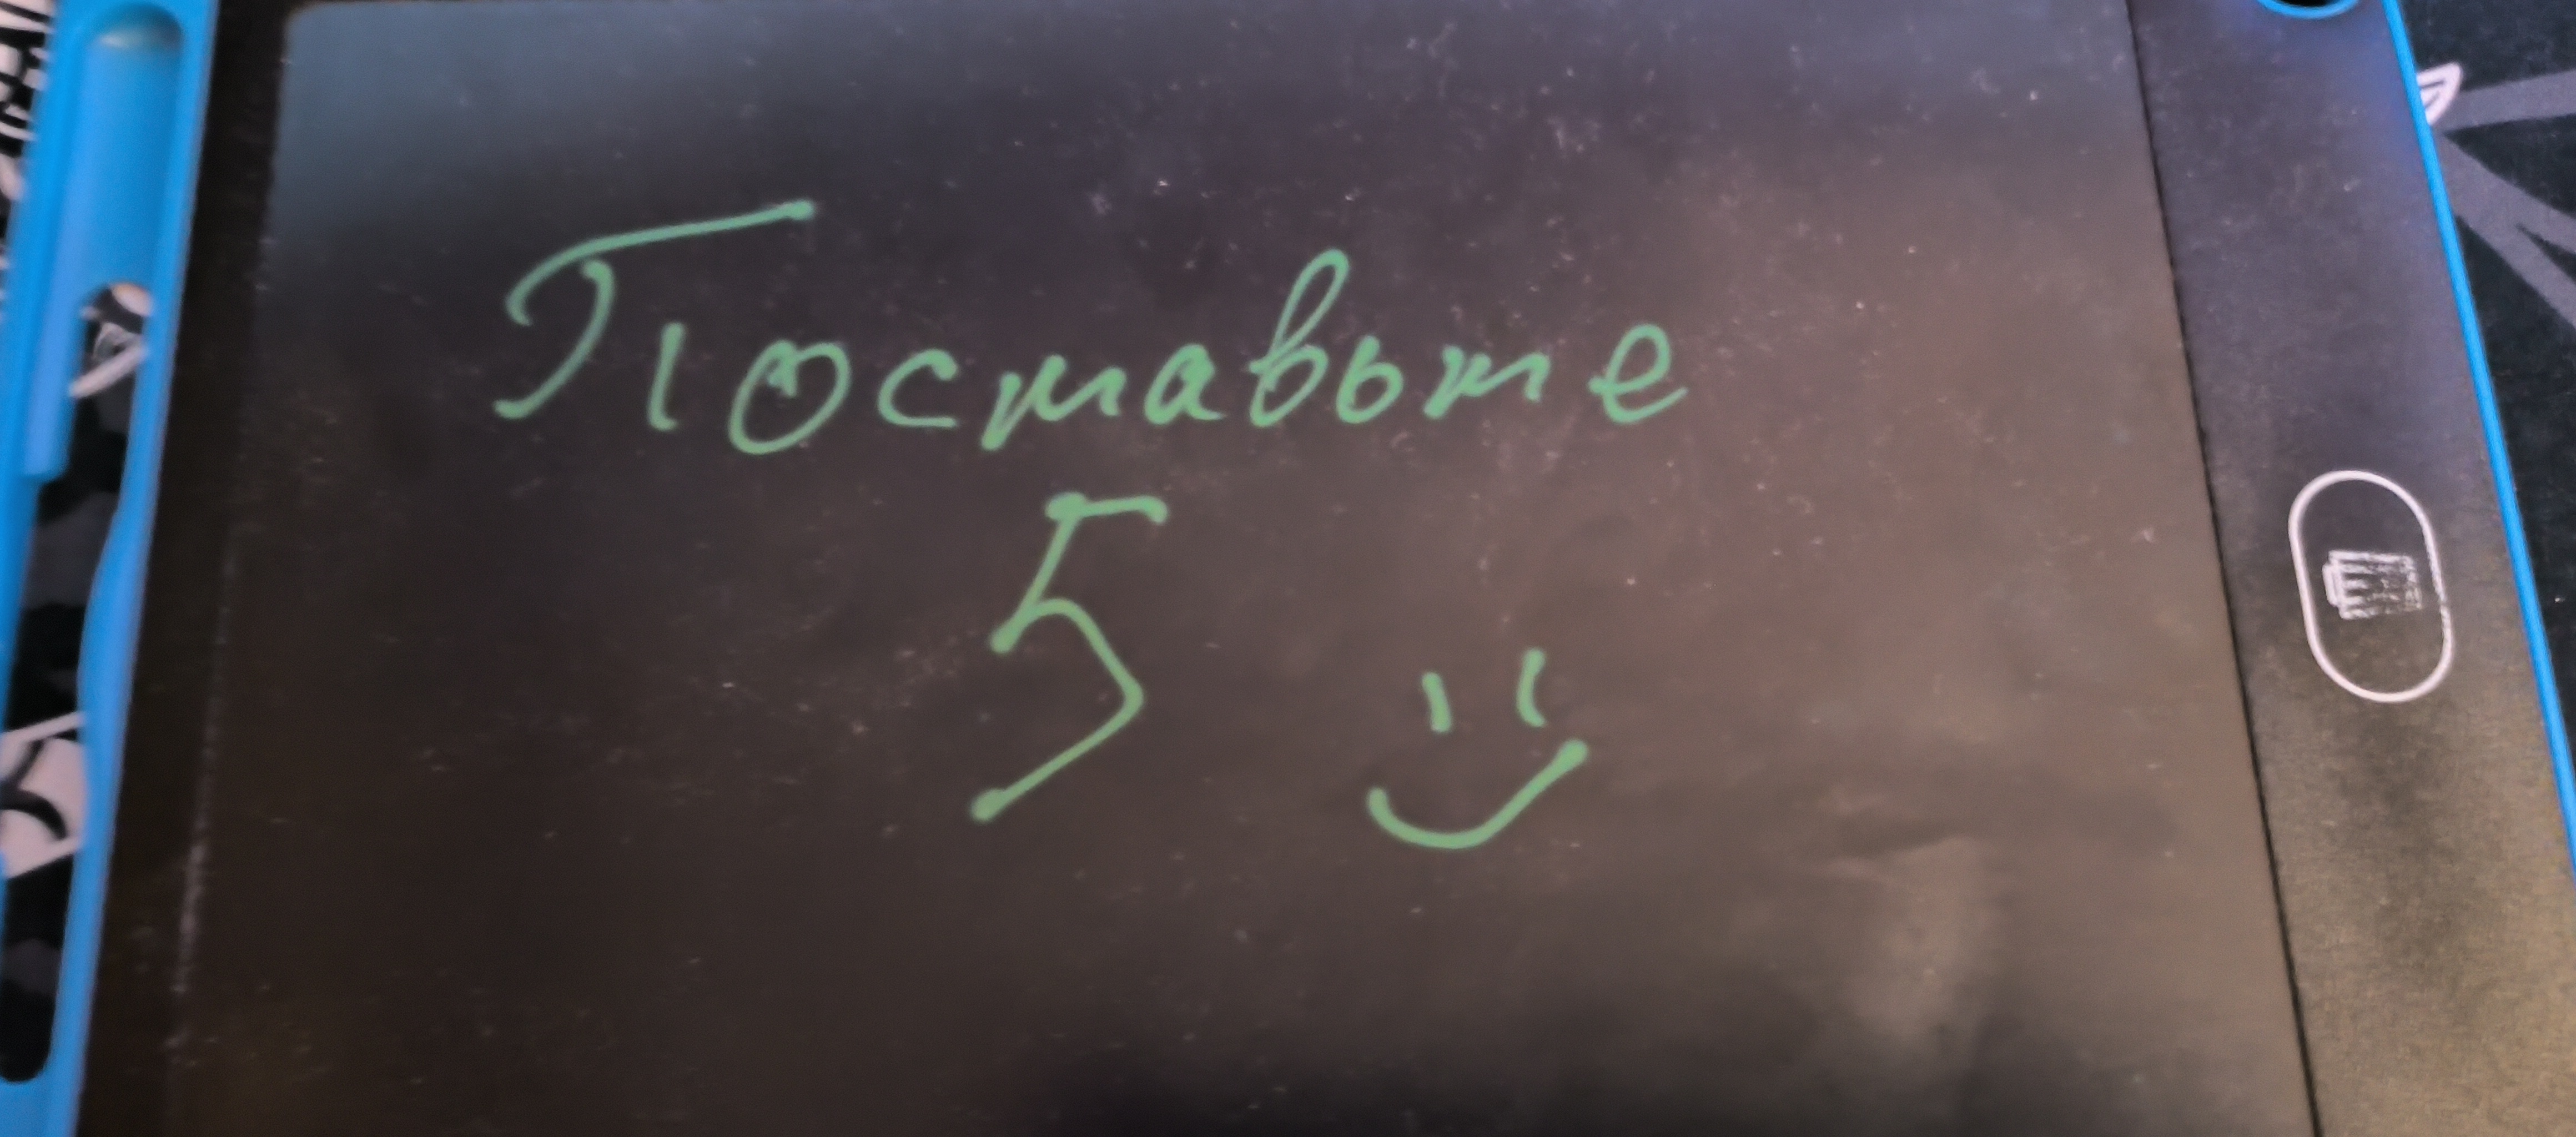 Поставьте
5